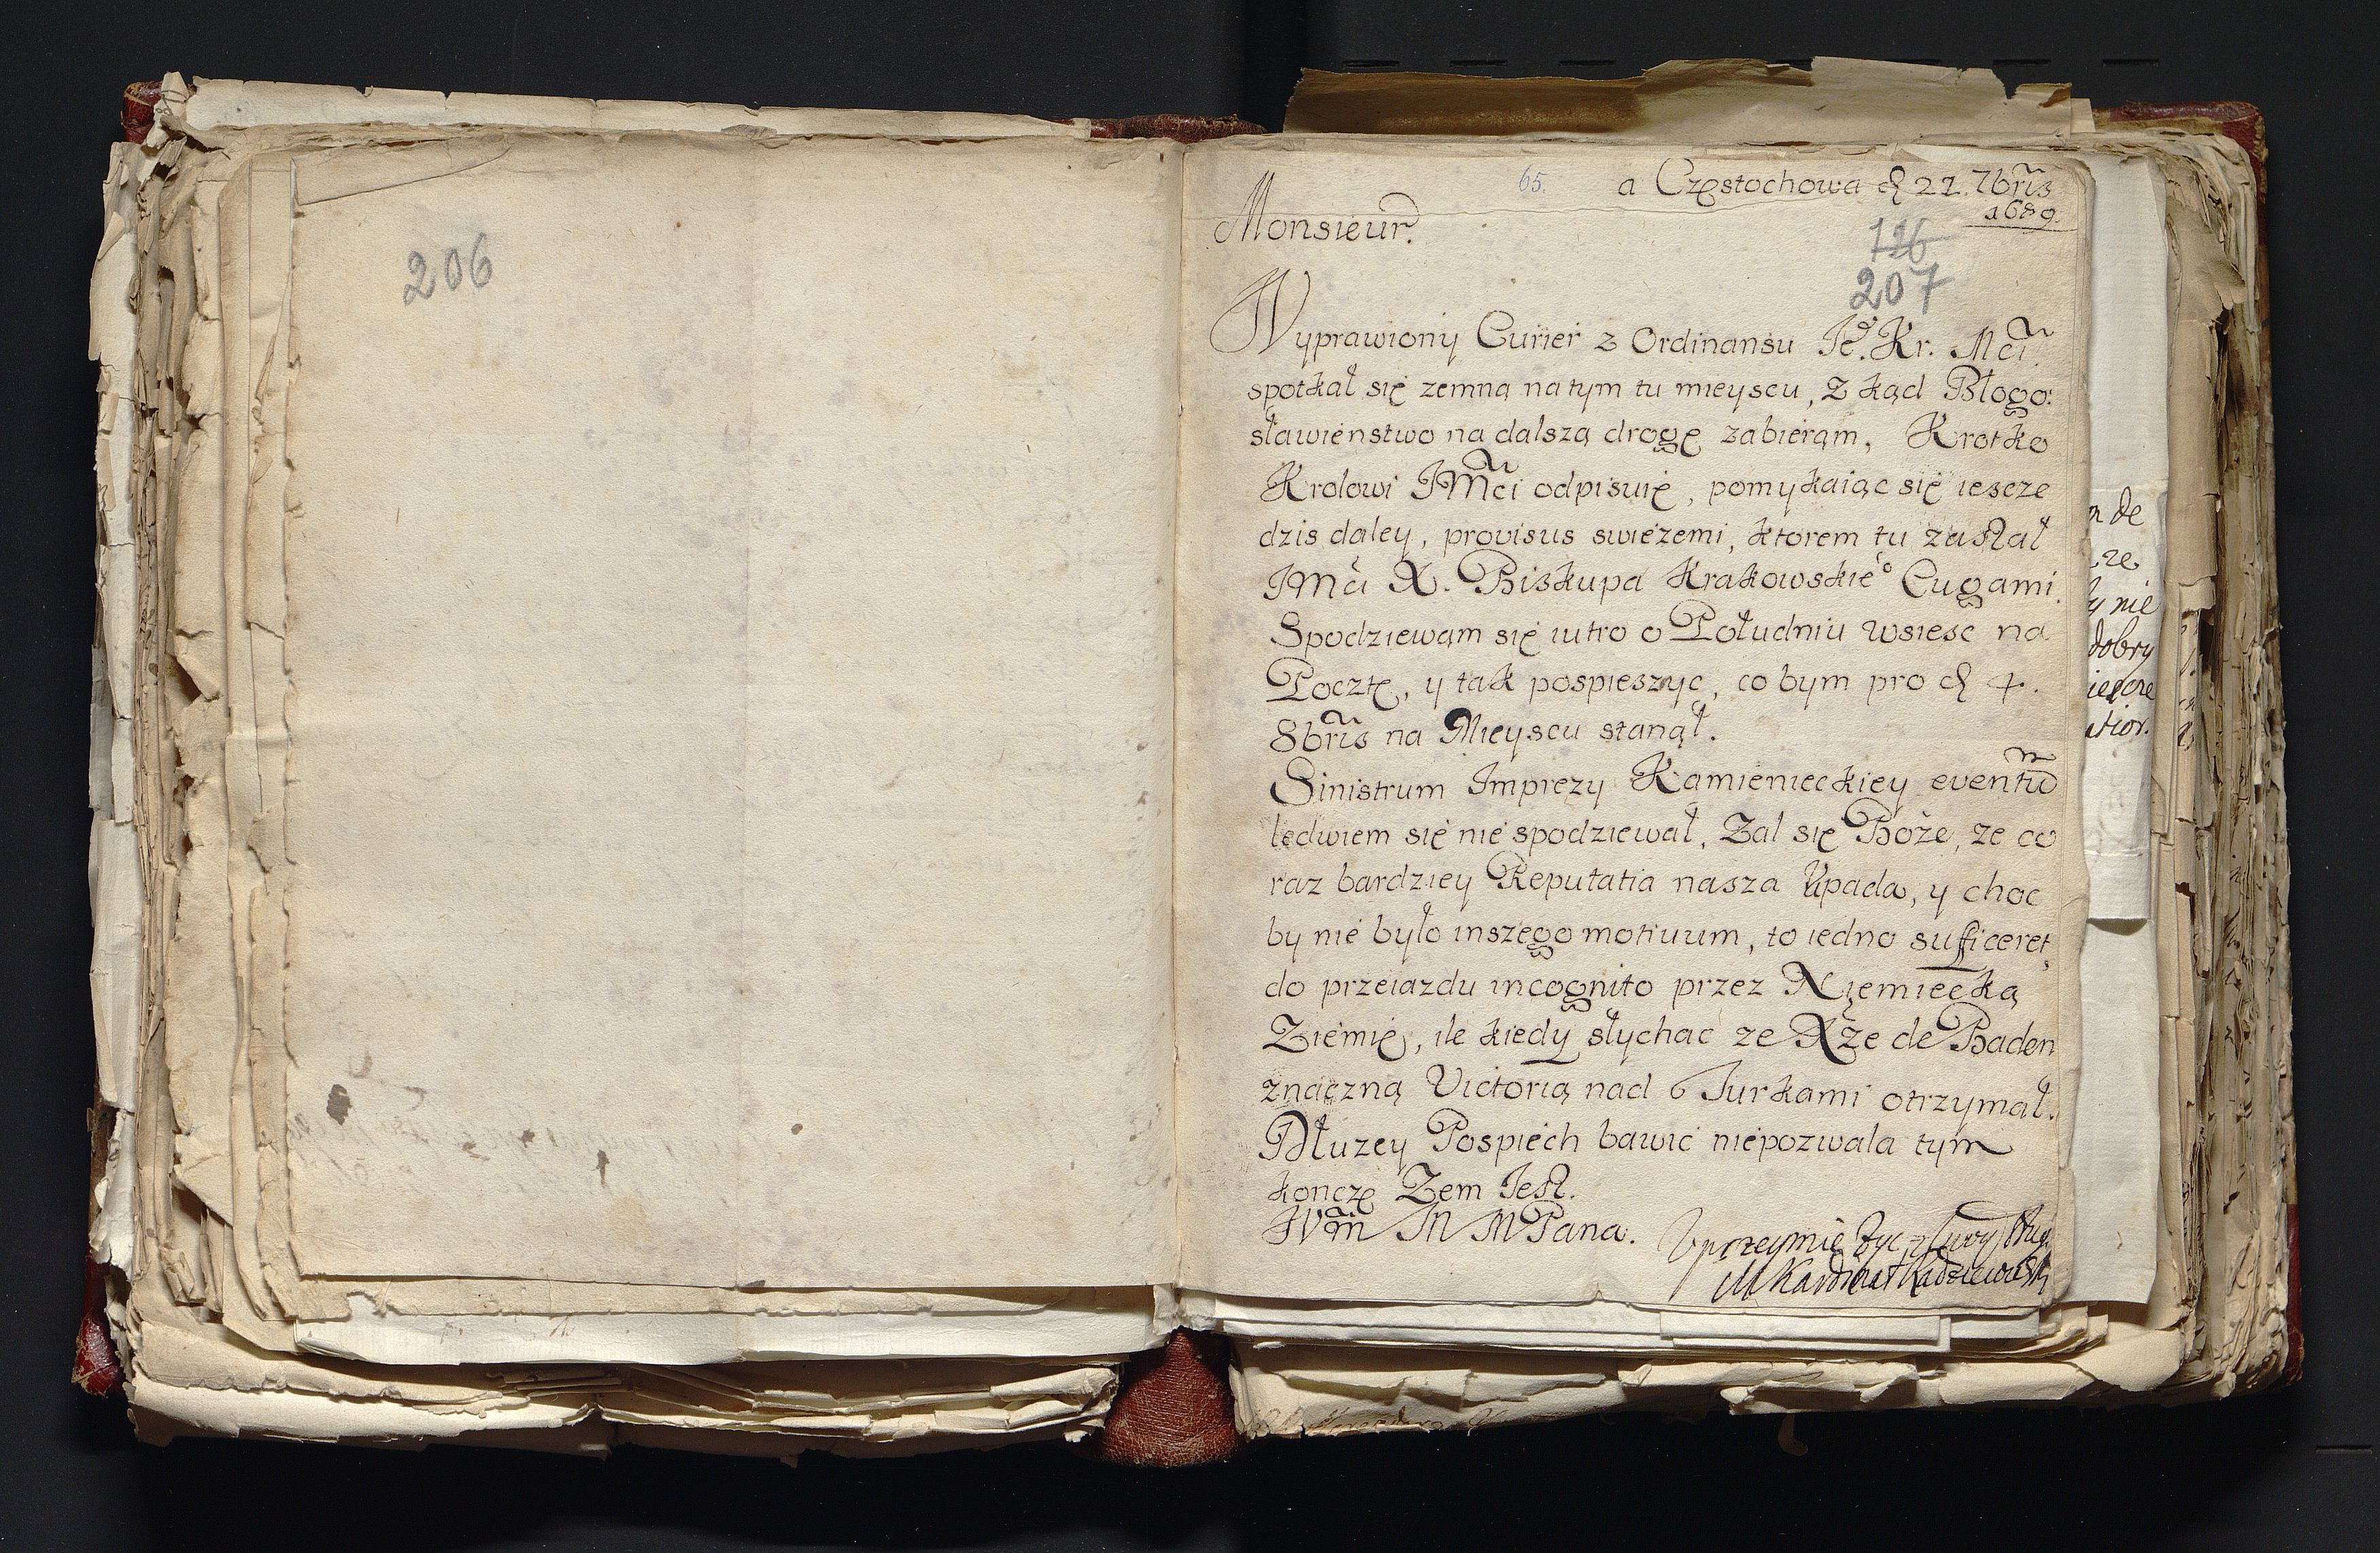 206
65.
a Częstochowa d 21. 7bris
1689.
Monsieur.
126
207
Wyprawiony Curier z Ordinansu Je°. Kr. Mci
spotkał się zemną na tym tu mieyscu, z kąd Błogo:
sławienstwo na dalszą drogę zabieram, Krotko
Krolowi JMci odpisuię, pomykaiąc się iescze
dzis daley, provisus swiezemi, ktorem tu zastał
JMci X. Biskupa Krakowskie° Cugami.
Spodziewam się iutro o Południu wsiesc na
Pocztę, y tak pospieszyc, co bym pro d 4.
8bris na Mieyscu stanął.
Sinistrum Imprezy Kamienieckiey eventu
ledwiem się nie spodziewał, Zal się Boże, ze co
raz bardziey Reputatia nasza Upada, y choc
by nie było inszego motivum, to iedno sufficeret,
do przeiazdu incognito przez Niemiecką
Ziemię, ile kiedy słychac ze Xże de Baden
znaczną Victorią nad Turkami otrzymał.
Dłuzey Pospiech bawic niepozwala tym
konczę Zem Jest.
Wm M M Pana.
Uprzeymie zyczliwy sług
M Kardinał Radziewski
de
ze
y nie
dobry
iescze